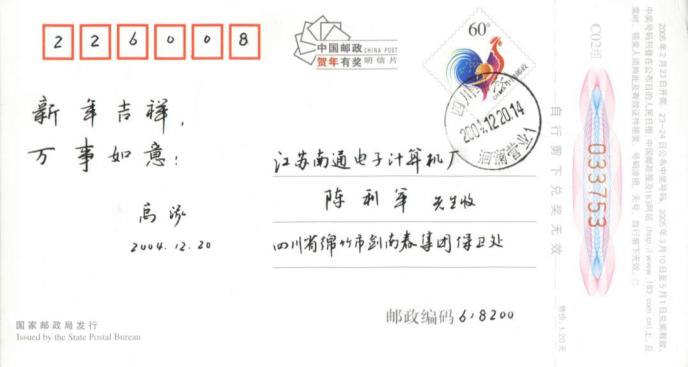 226008
中国邮政 CHINA POST
贺年有奖 明信片
60分
中国邮政
四川
2004.12.20.14
洄澜营业1
新年吉祥,
万事如意!
高泓
2004.12.20
江苏南通电子计算机厂
陈利军 先生收
四川省绵竹市剑南春集团保卫处
邮政编码 618200
国家邮政局发行
Issued by the State Postal Bureau
自行剪下兑奖无效
售价:1.20元
C02组
033753